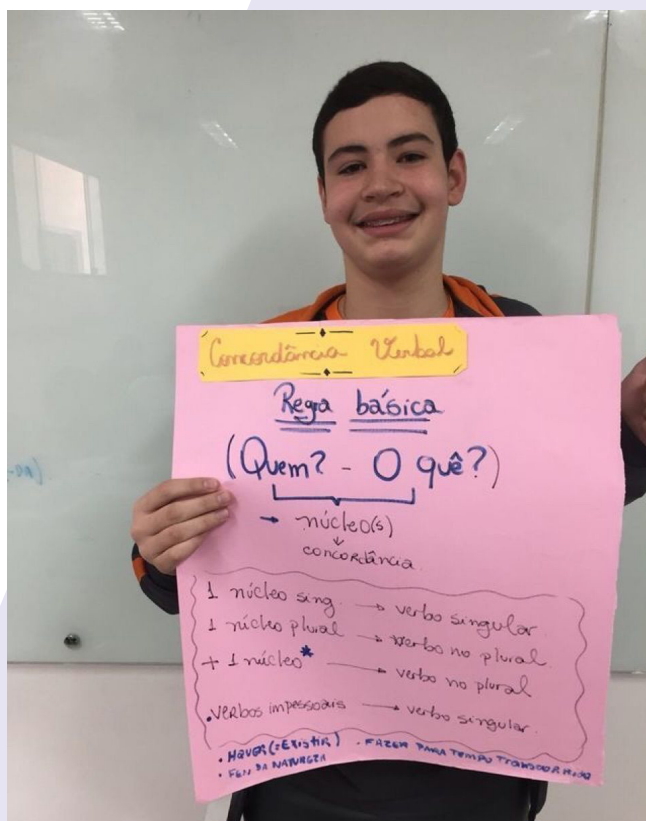 Concordância Verbal
Regra básica
(Quem? - O quê?)
→ núcleo(s)
↓
concordância.
1 núcleo sing. → verbo singular.
1 núcleo plural → verbo no plural.
+ 1 núcleo* → verbo no plural
• verbos impessoais → verbo singular.
• HAVER (=EXISTIR) • FAZER PARA TEMPO TRANSCORRIDO
• FEN DA NATUREZA